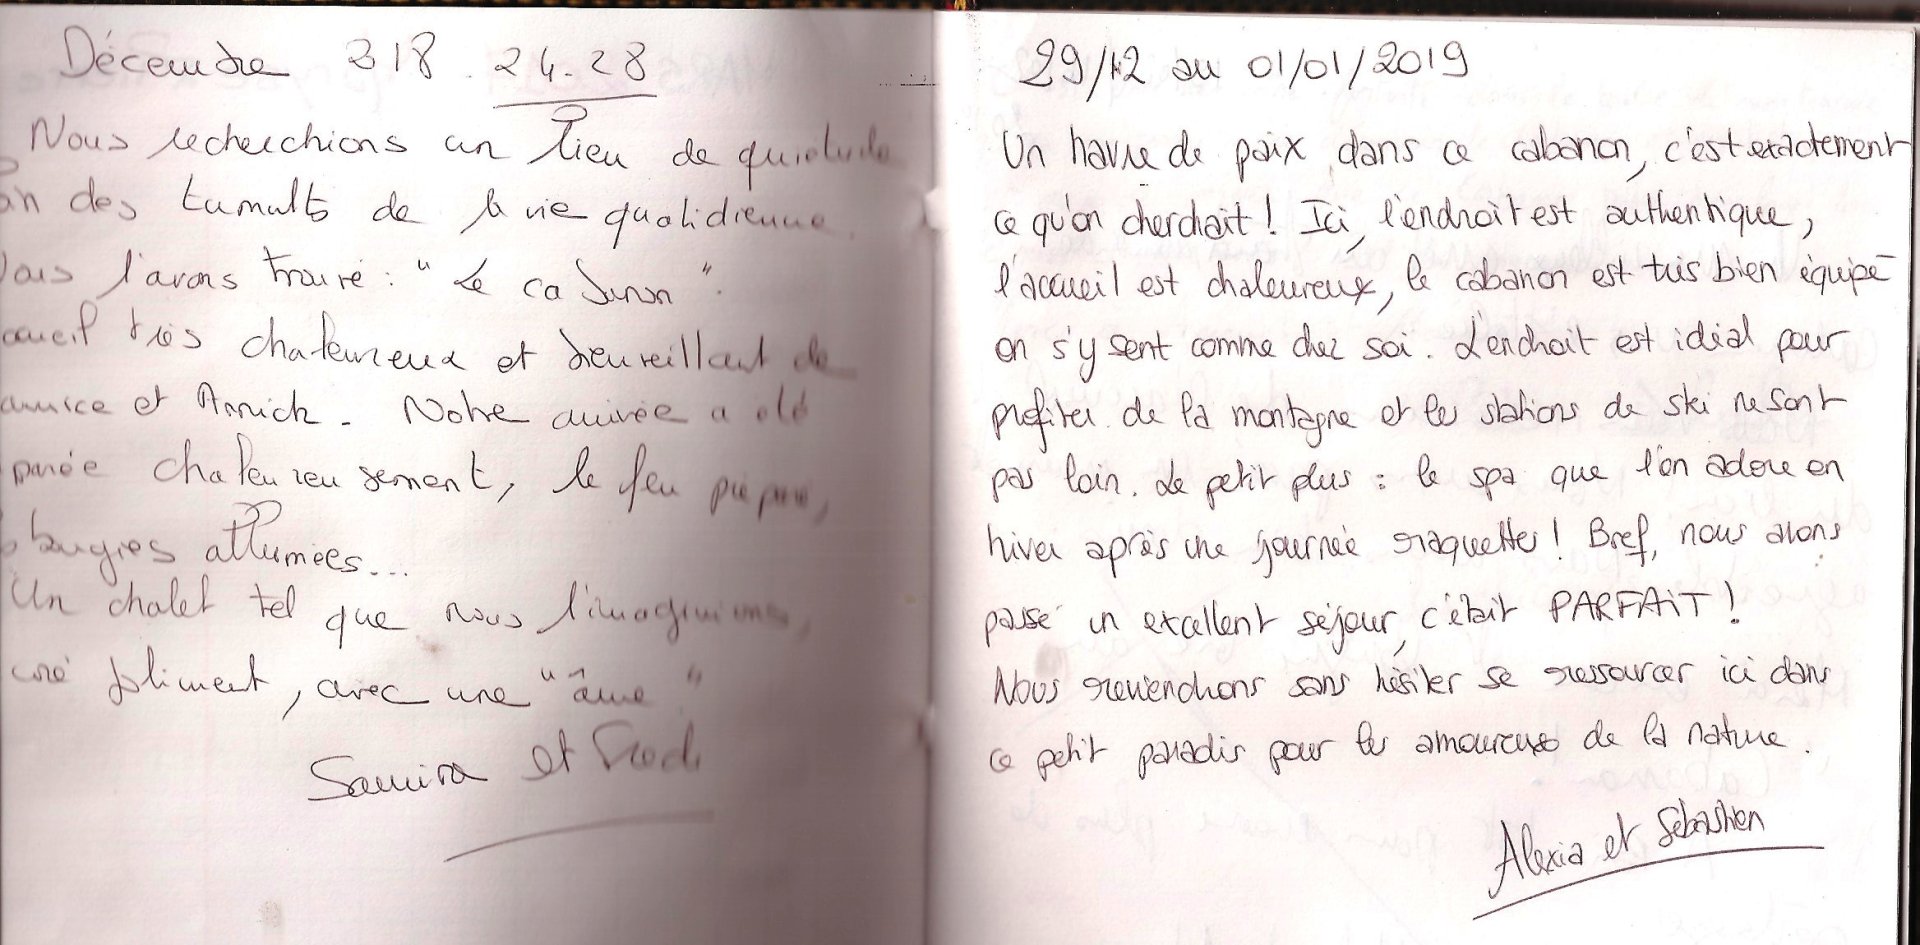 Décembre 318. 24-28
Nous recherchions un lieu de quiétude
des tumults de la vie quotidienne.
l'avons trouvé : "Le cabanon".
très chaleureux et bienveillant de
et Annick. Notre arrivée a été
chaleureusement, le feu préparé,
bougies allumées...
Un chalet tel que nous l'imaginions,
joliment, avec une "âme"
Samira et Fred
29/12 au 01/01/2019
Un havre de paix dans ce cabanon, c'est exactement
ce qu'on cherchait ! Ici, l'endroit est authentique,
l'accueil est chaleureux, le cabanon est très bien équipé
on s'y sent comme chez soi. L'endroit est idéal pour
profiter de la montagne et les stations de ski ne sont
pas loin. Le petit plus : le spa que l'on adore en
hiver après une journée raquettes ! Bref, nous avons
passé un excellent séjour, c'était PARFAIT !
Nous reviendrons sans hésiter se ressourcer ici dans
ce petit paradis pour les amoureux de la nature.
Alexia et Sébastien